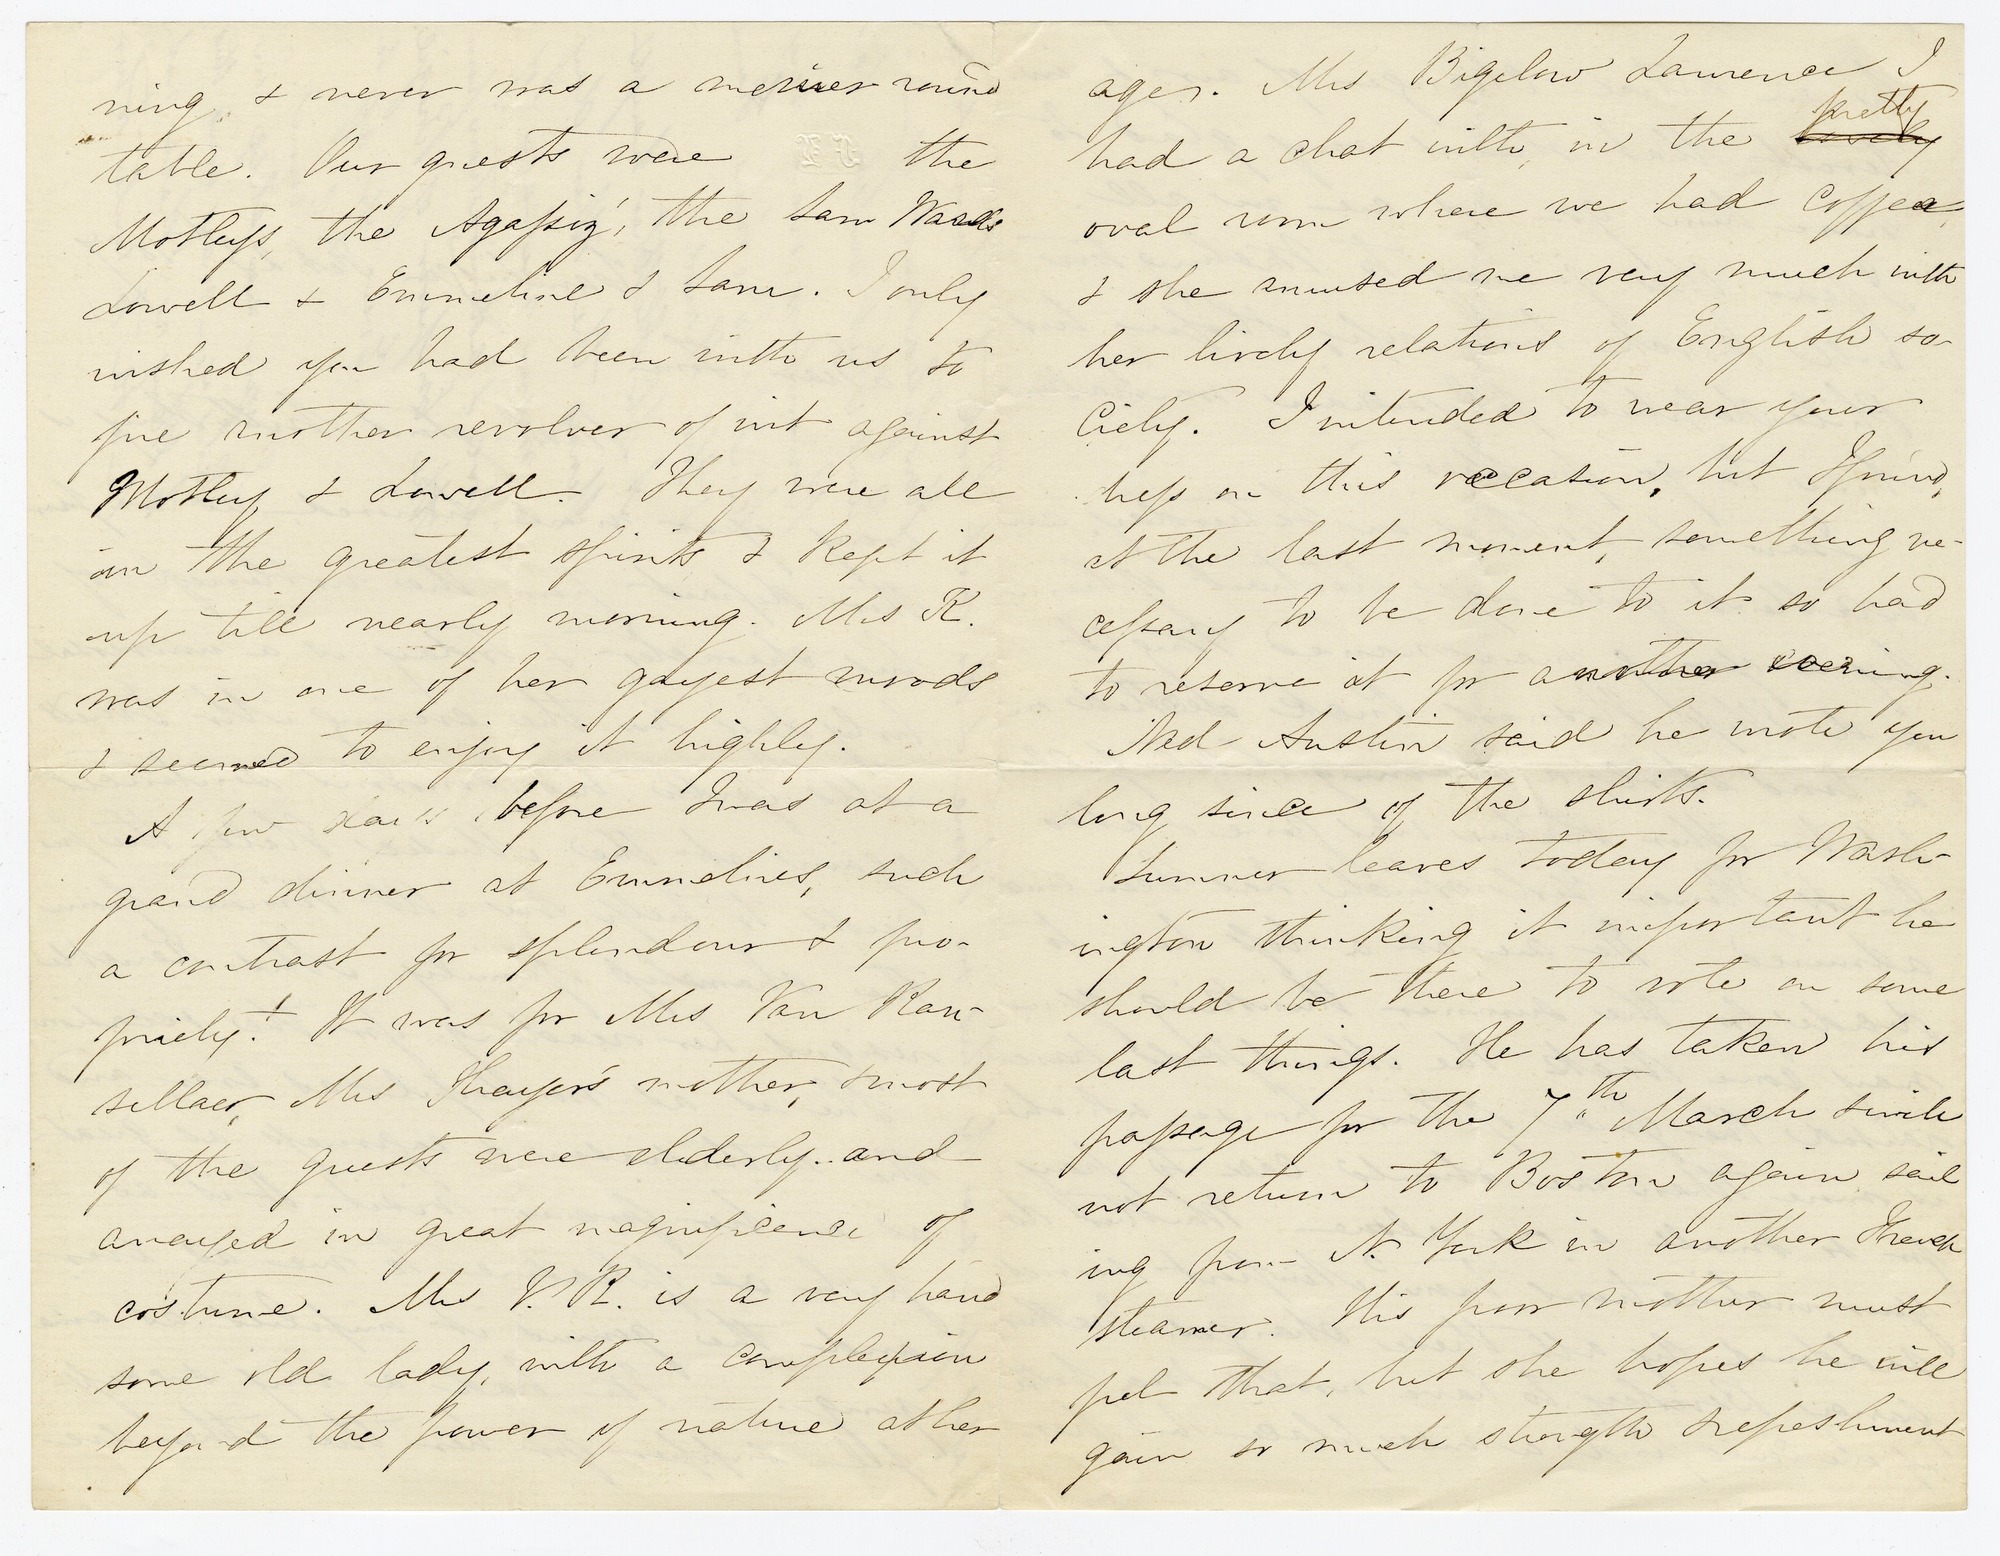 ning, & never was a merrier round
table. Our guests were the
Motleys, the Agassiz', the Sam Wards
Lowell & Emmeline & Sam. I only
wished you had been with us to
fire another revolver of wit against
Motley & Lowell. They were all
in the greatest spirits & kept it
up till nearly morning. Mrs K.
was in one of her gayest moods
& seemed to enjoy it highly.
A few days before I was at a
grand dinner at Emmeline's, such
a contrast for splendour & pro-
priety! It was for Mrs Van Ran-
sellaer, Mrs Thayer's mother, & most
of the guests were elderly and
arrayed in great magnificence of
costume. Mrs V. R. is a very hand
some old lady, with a complexion
beyond the power of nature at her
ages. Mrs Bigelow Lawrence I
had a chat with, in the ~~lovely~~ pretty
oval room where we had coffee,
& she amused me very much with
her lively relations of English so-
ciety. I intended to wear your
on this occasion, but I found,
at the last moment, something ne-
cessary to be done to it so had
to reserve it for another evening.
Ned Austin said he wrote you
long since of the shirts.
Sumner leaves today for Wash-
ington thinking it important he
should be there to vote on some
last things. He has taken his
passage for the 7th March & will
not return to Boston again sail
ing from N. York in another French
steamer. His poor mother must
feel that, but she hopes he will
gain so much strength & refreshment